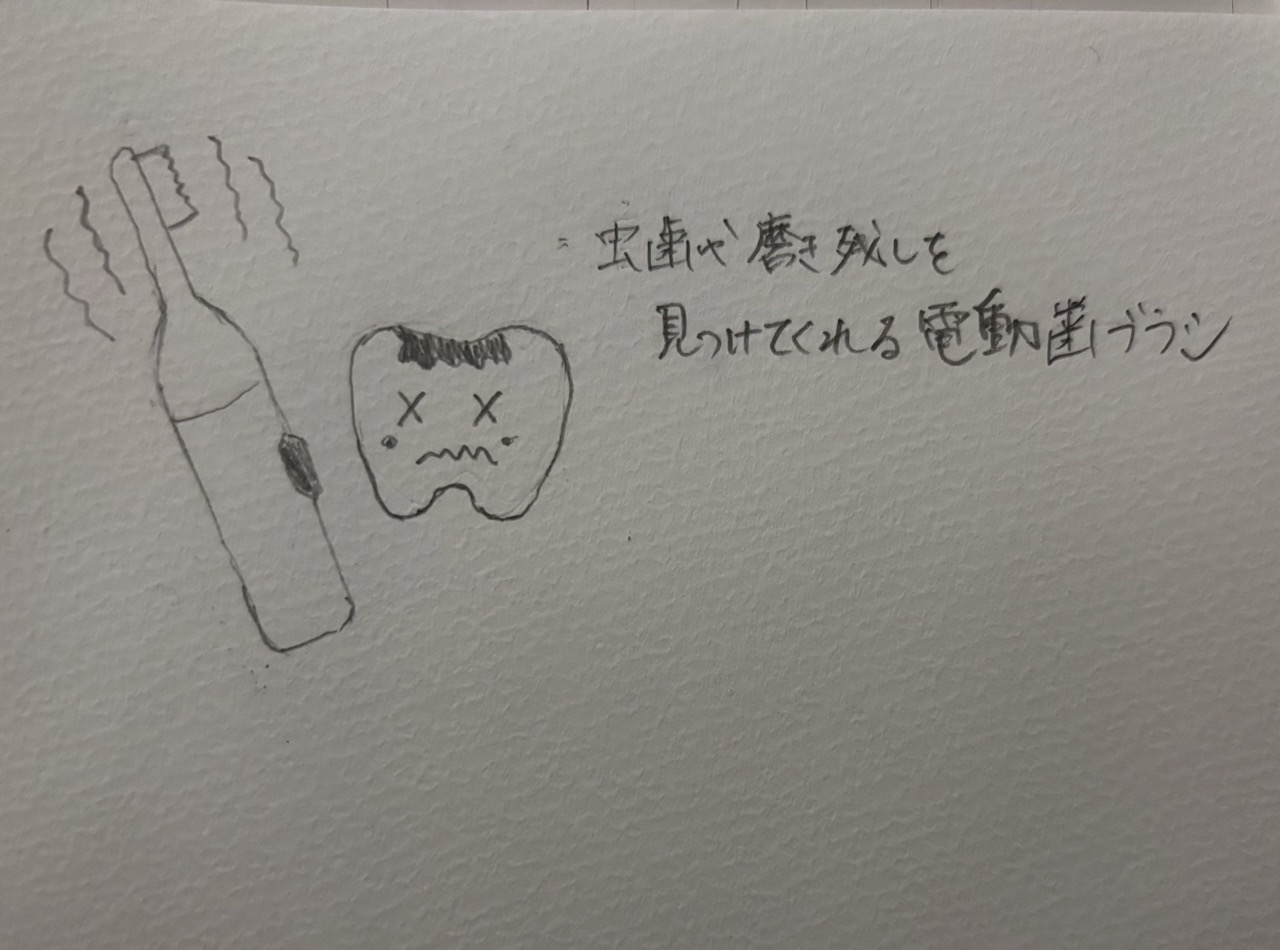 虫歯や磨き残しを
見つけてくれる電動歯ブラシ